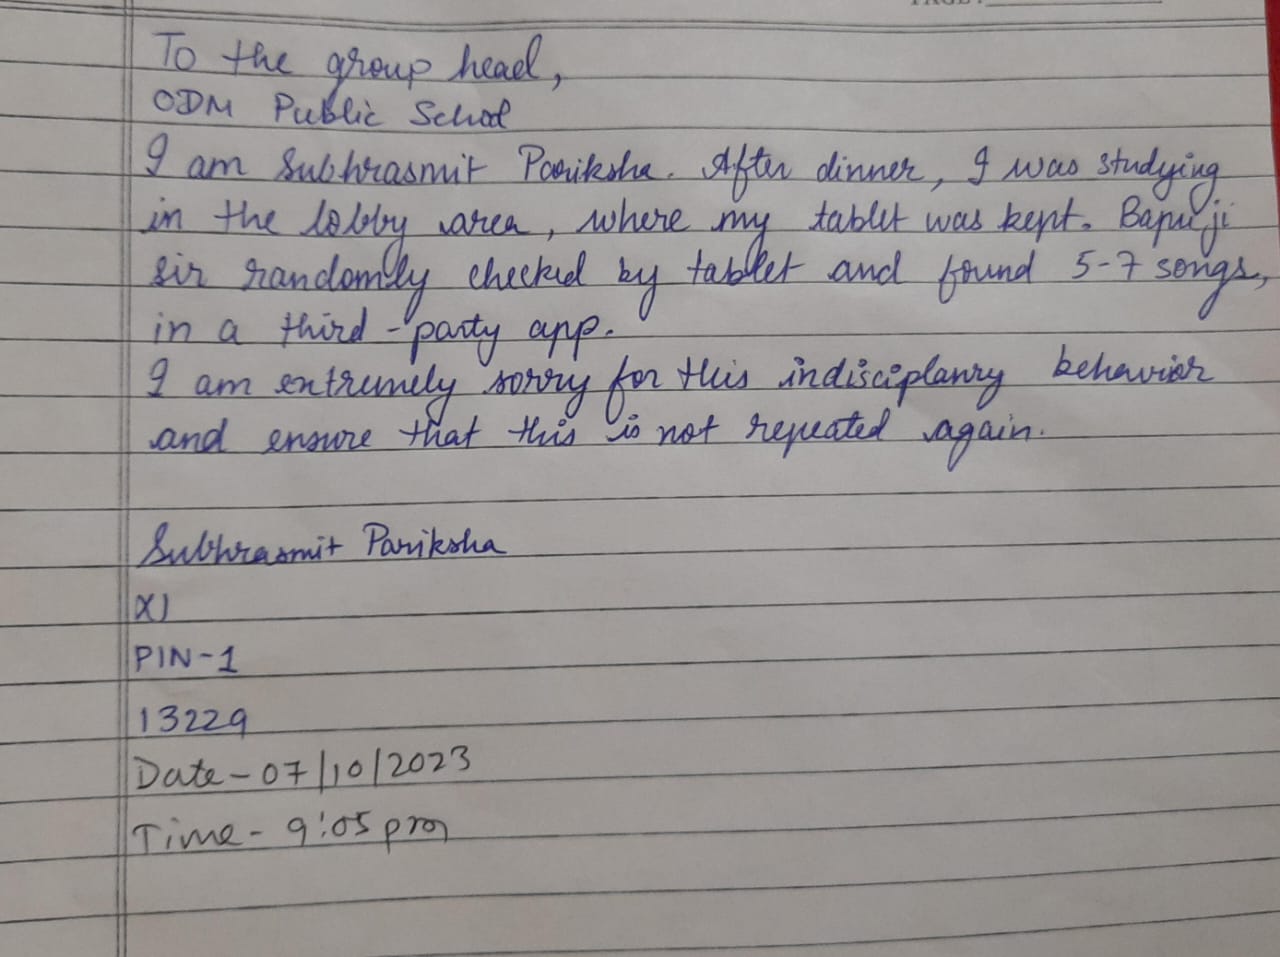 To the group head,
ODM Public School
I am Subhrasmit Pariksha. After dinner, I was studying
in the lobby area, where my tablet was kept. Bapuji
sir randomly checked by tablet and found 5-7 songs,
in a third-party app.
I am extremely sorry for this indisciplanry behavior
and ensure that this is not repeated again.
Subhrasmit Pariksha
XI
PIN-1
13229
Date-07/10/2023
Time-9:05pm